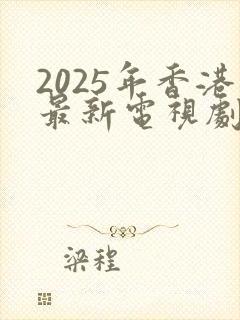 2025年香港
最新電視劇
梁程